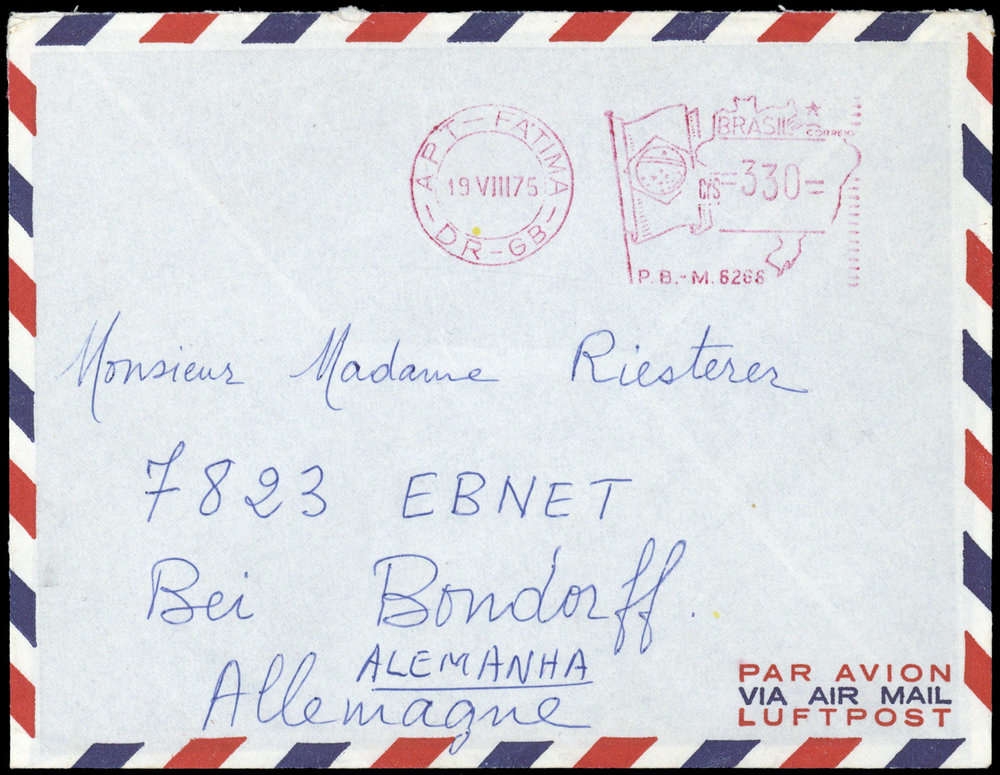 APT-FÁTIMA
19 VIII 75
DR-GB
BRASIL CORREIO
Cr$ =330=
P.B.-M.6266
Monsieur Madame Riesterer
7823 EBNET
Bei Bondorff.
ALEMANHA
Allemagne
PAR AVION
VIA AIR MAIL
LUFTPOST